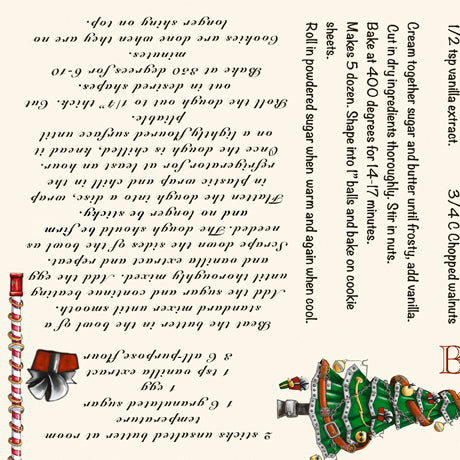 2 sticks unsalted butter at room
temperature
1 C granulated sugar
1 egg
1 tsp vanilla extract
3 C all-purpose flour
Beat the butter in the bowl of a
standard mixer until smooth.
Add the sugar and continue beating
until thoroughly mixed. Add the egg
and vanilla extract and repeat.
Scrape down the sides of the bowl as
needed. The dough should be firm
and no longer be sticky.
Flatten the dough into a disc, wrap
in plastic wrap and chill in the
refrigerator for at least an hour.
Once the dough is chilled, knead it
on a lightly floured surface until
pliable.
Roll the dough out to 1/4" thick. Cut
out in desired shapes.
Bake at 350 degrees for 6-10
minutes.
Cookies are done when no are they
longer shiny on top.
1/2 tsp vanilla extract.
3/4 C Chopped walnuts
Cream together sugar and butter until frosty, add vanilla.
Cut in dry ingredients thoroughly. Stir in nuts.
Bake at 400 degrees for 14-17 minutes.
Makes 5 dozen. Shape into 1" balls and bake on cookie
sheets.
Roll in powdered sugar when warm and again when cool.
B